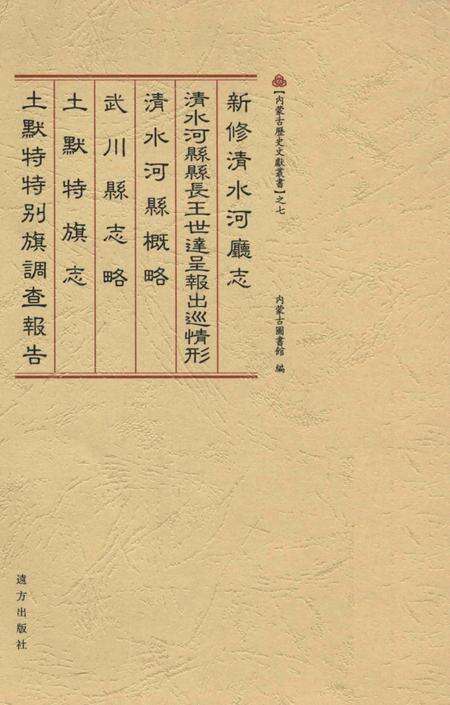 【內蒙古歷史文獻叢書】之七
內蒙古圖書館 編
新修清水河廳志
清水河縣縣長王世達呈報出巡情形
清水河縣概略
武川縣志略
土默特旗志
土默特特別旗調查報告
遠方出版社